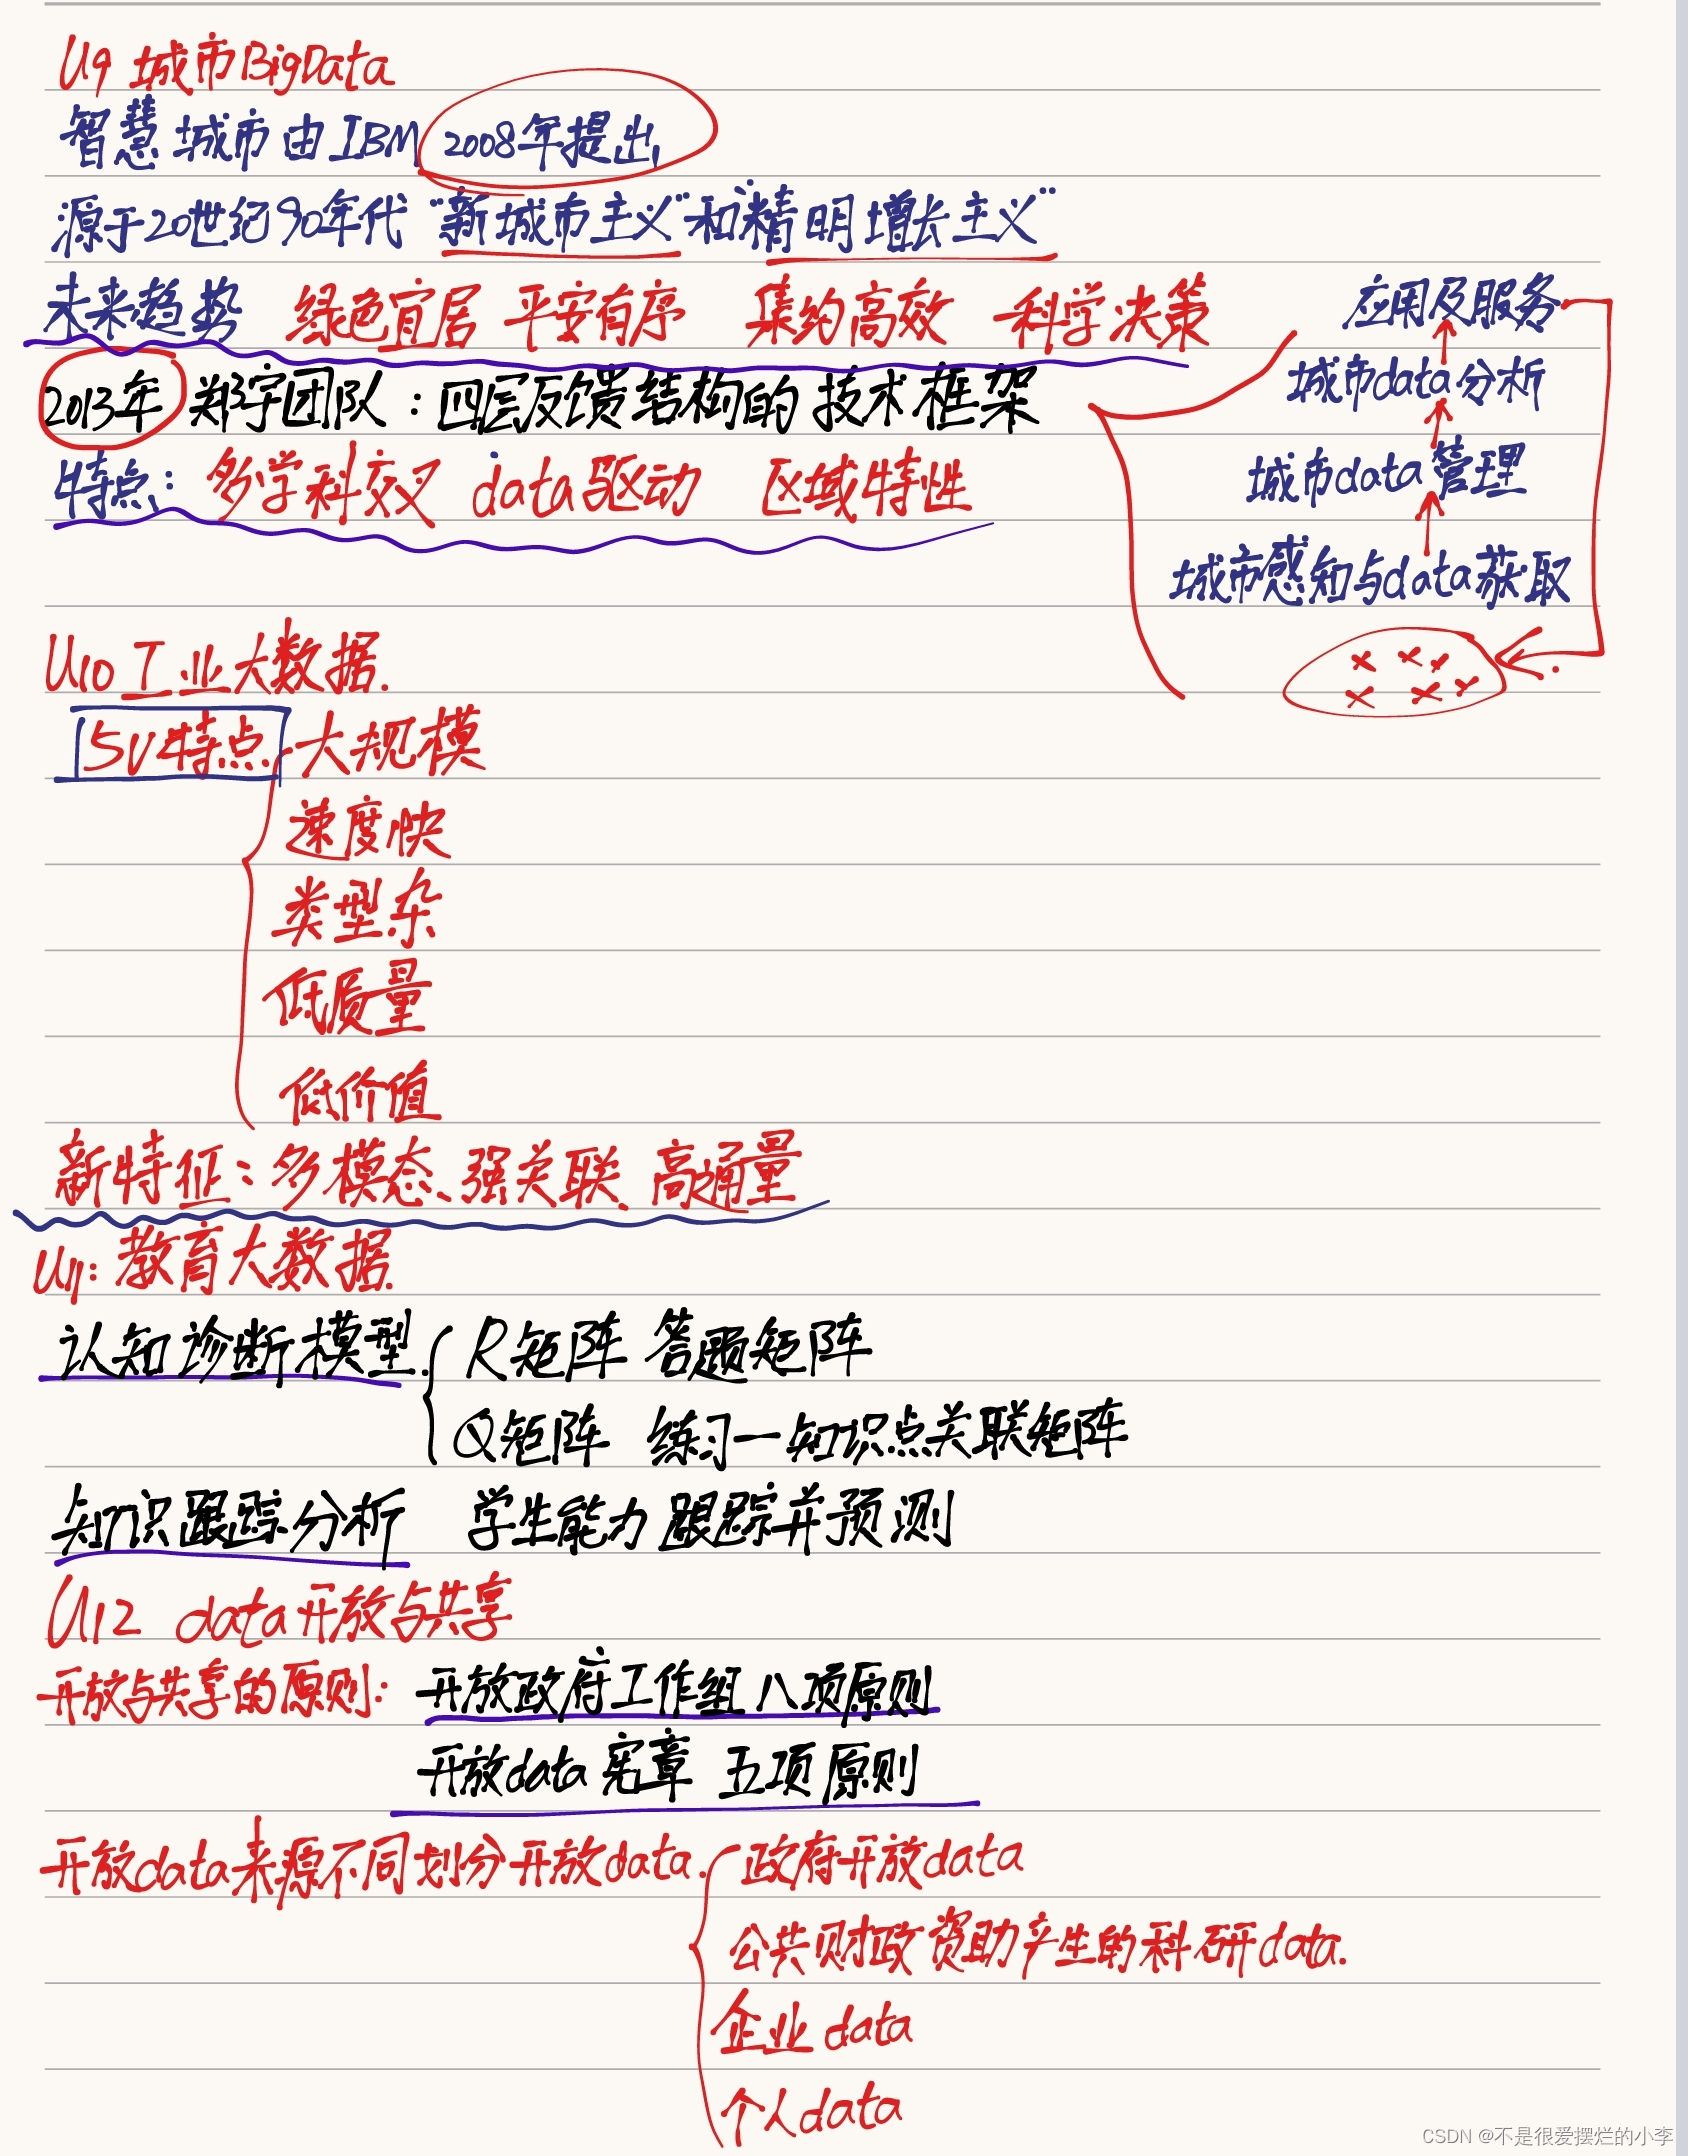 U9 城市BigData
智慧城市由IBM 2008年提出,
源于20世纪90年代"新城市主义"和"精明增长主义"
未来趋势 绿色宜居 平安有序 集约高效 科学决策
2013年 郑宇团队：四层反馈结构的技术框架
应用及服务
城市data分析
城市data管理
城市感知与data获取
特点：多学科交叉 data驱动 区域特性
U10 工业大数据.
5V特点 大规模
速度快
类型杂
低质量
低价值
新特征：多模态、强关联、高通量
U11：教育大数据.
认知诊断模型 R矩阵 答题矩阵
Q矩阵 练习一知识点关联矩阵
知识跟踪分析 学生能力跟踪并预测
U12 data开放与共享
开放与共享的原则：开放政府工作组八项原则
开放data宪章 五项原则
开放data来源不同划分开放data. 政府开放data
公共财政资助产生的科研data.
企业data
个人data
CSDN @不是很爱摆烂的小李